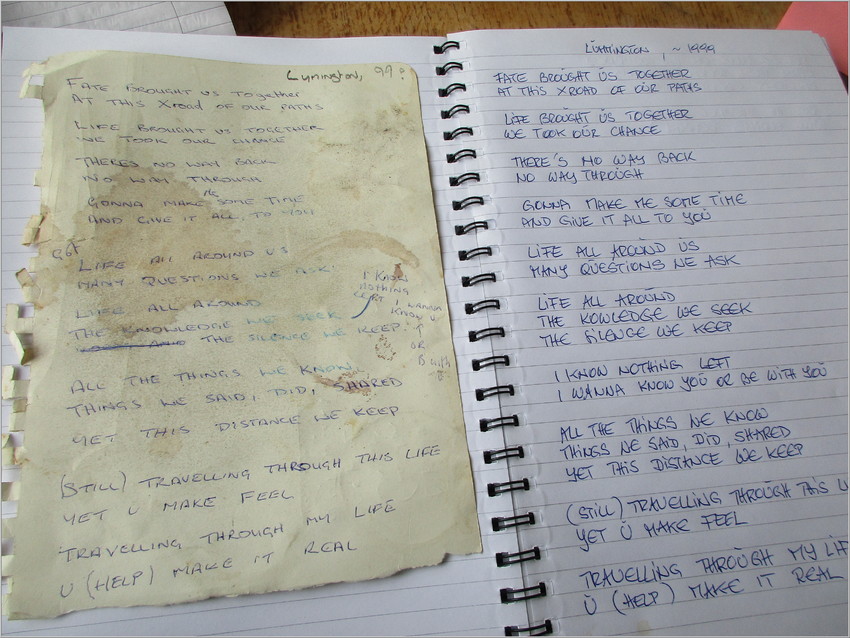 Lymington, 99?
FATE BROUGHT US TOGETHER
AT THIS XROAD OF OUR PATHS
LIFE BROUGHT US TOGETHER
WE TOOK OUR CHANCE
THERES NO WAY BACK
NO WAY THROUGH
GONNA MAKE ME SOME TIME
AND GIVE IT ALL, TO YOU
LIFE ALL AROUND US
MANY QUESTIONS WE ASK
LIFE ALL AROUND
THE KNOWLEDGE WE SEEK
THE SILENCE WE KEEP
I KNOW
NOTHING
LEFT
I WANNA
KNOW U
OR
B with
ALL THE THINGS WE KNOW
THINGS WE SAID, DID, SHARED
YET THIS DISTANCE WE KEEP
(STILL) TRAVELLING THROUGH THIS LIFE
YET U MAKE FEEL
TRAVELLING THROUGH MY LIFE
U (HELP) MAKE IT REAL
LYMINGTON, ~ 1999
FATE BROUGHT US TOGETHER
AT THIS XROAD OF OUR PATHS
LIFE BROUGHT US TOGETHER
WE TOOK OUR CHANCE
THERE'S NO WAY BACK
NO WAY THROUGH
GONNA MAKE ME SOME TIME
AND GIVE IT ALL TO YOU
LIFE ALL AROUND US
MANY QUESTIONS WE ASK
LIFE ALL AROUND
THE KOWLEDGE WE SEEK
THE SILENCE WE KEEP
I KNOW NOTHING LEFT
I WANNA KNOW YOU OR BE WITH YOU
ALL THE THINGS WE KNOW
THINGS WE SAID, DID, SHARED
YET THIS DISTANCE WE KEEP
(STILL) TRAVELLING THROUGH THIS
YET U MAKE FEEL
TRAVELLING THROUGH MY LIF
U (HELP) MAKE IT REAL